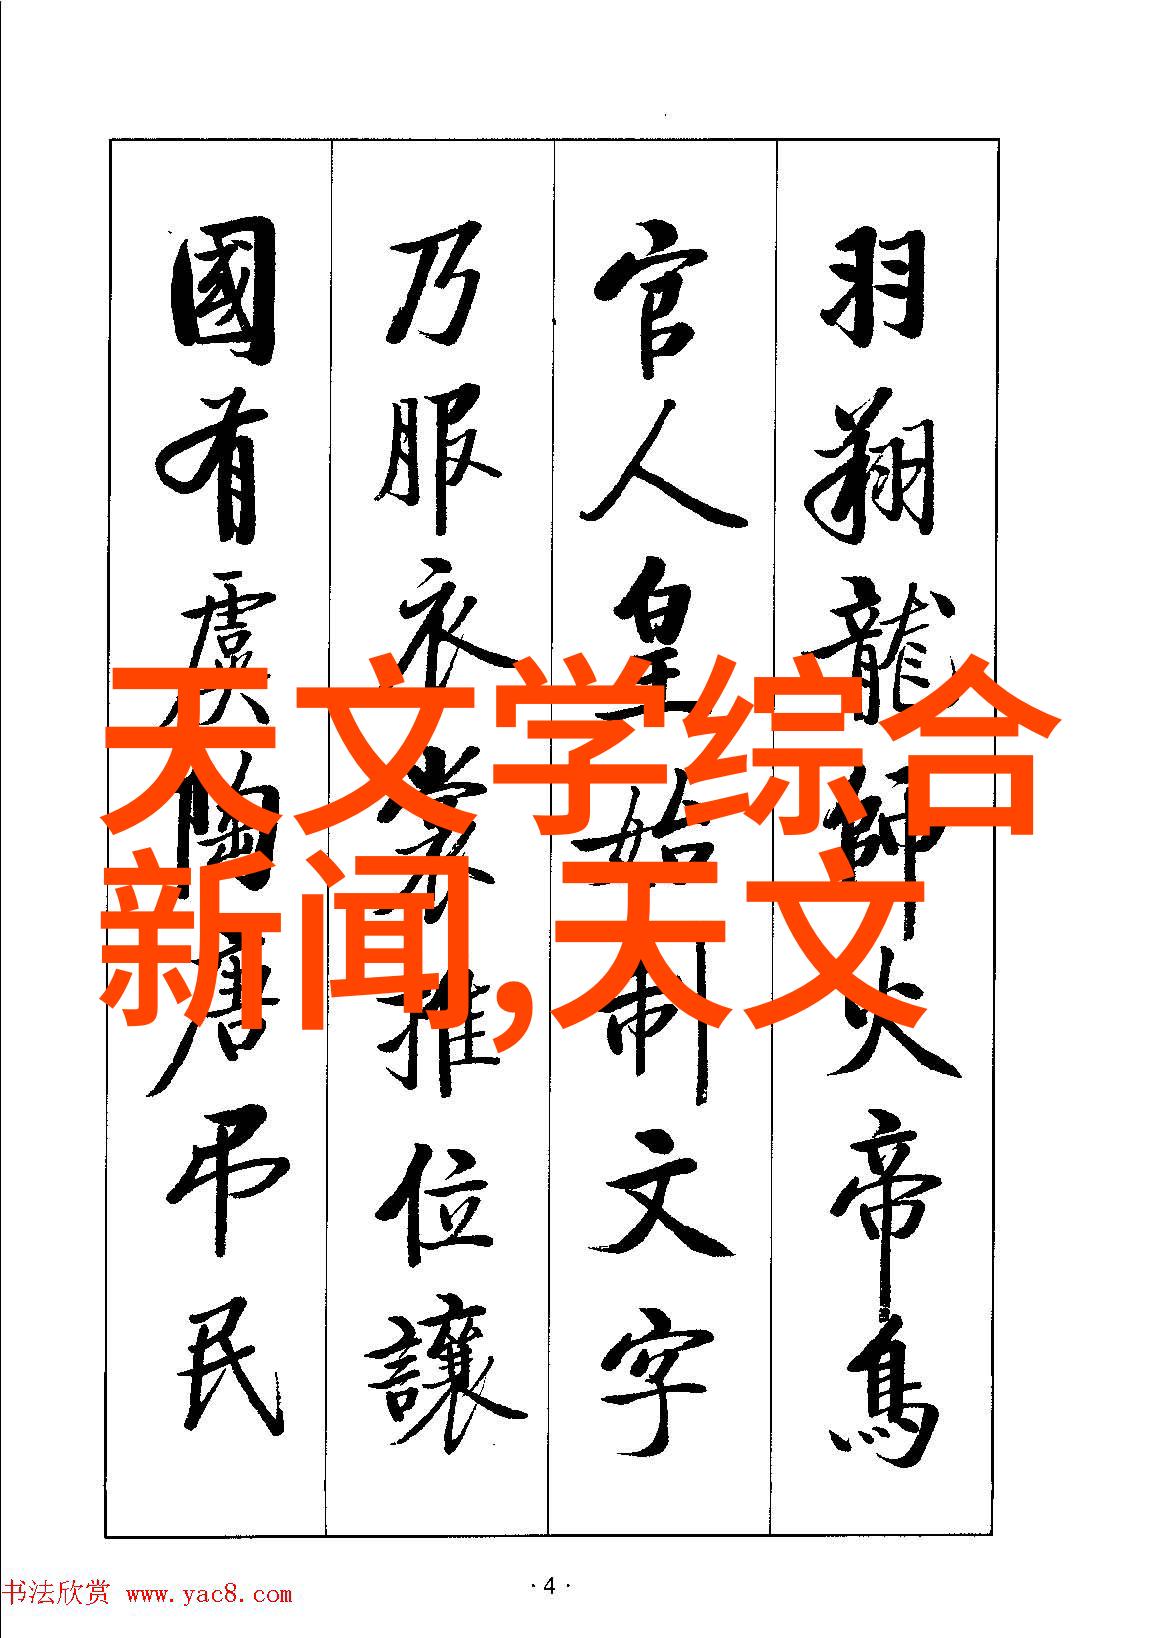 羽翔龍師火帝鳥
官人皇始制文字
乃服衣裳推位讓
國有虞陶唐弔民
天文学综合
新闻,天文
书法欣赏 www.yac8.com
·4·